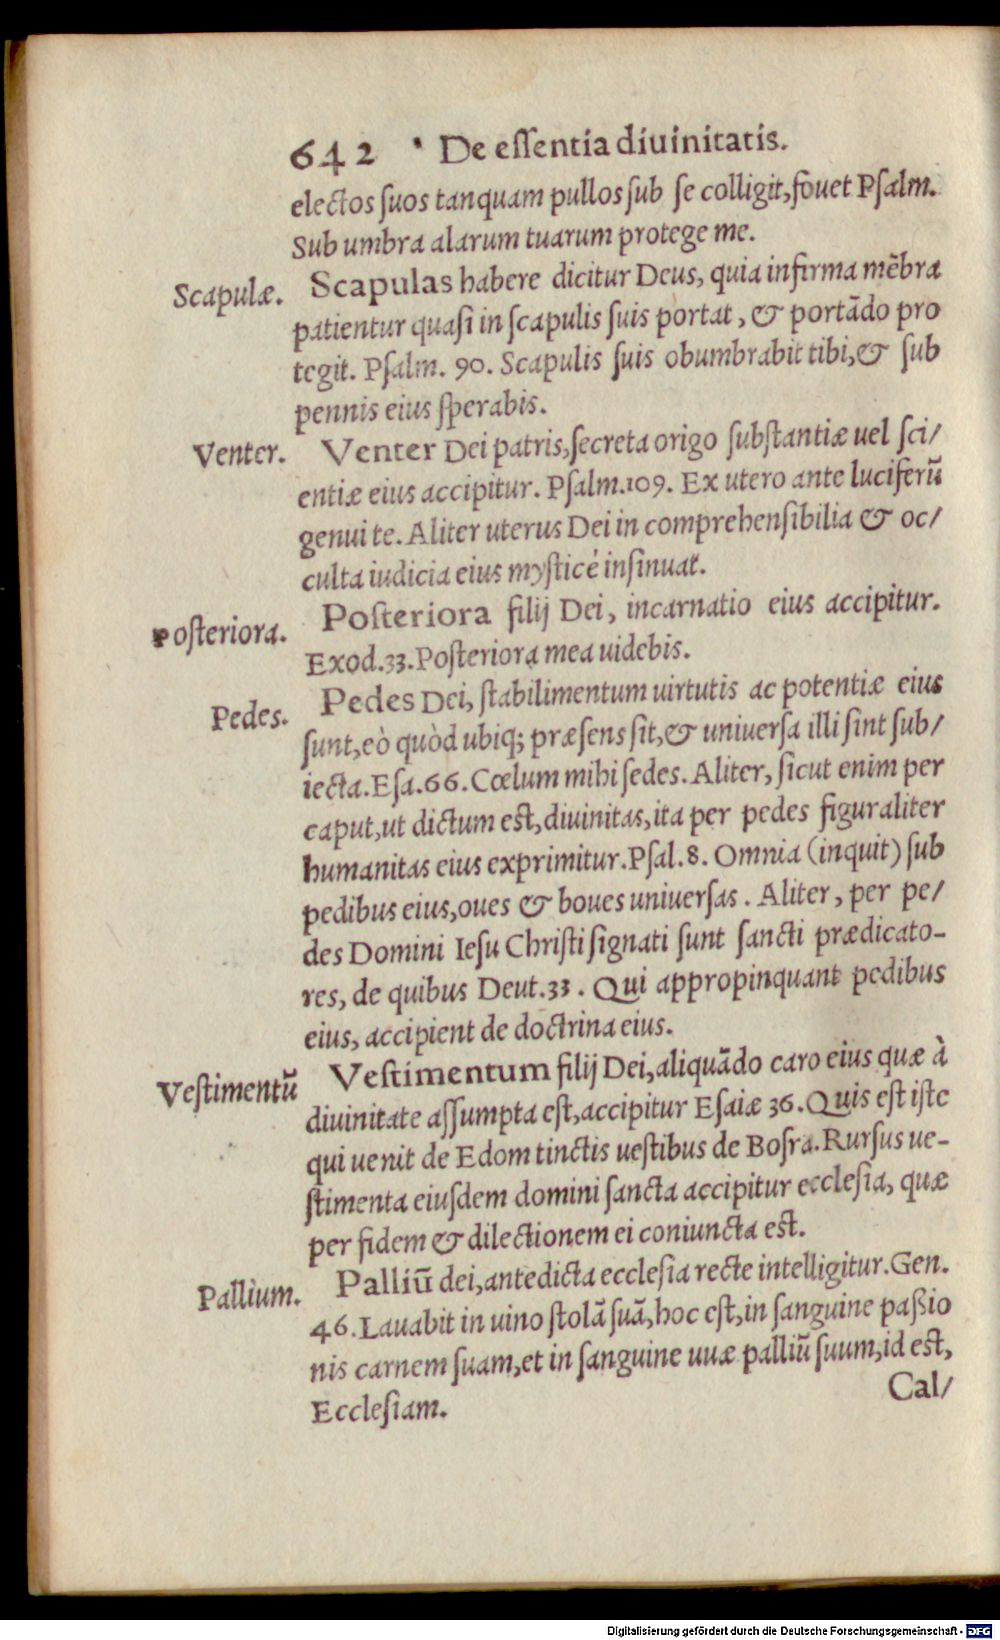 642 De eſſentia diuinitatis.
electos ſuos tanquam pullos ſub ſe colligit, fouet Pſalm.
Sub umbra alarum tuarum protege me.
Scapulæ. Scapulas habere dicitur Deus, quia infirma mẽbra
patientur quaſi in ſcapulis ſuis portat, & portãdo pro
tegit. Pſalm. 90. Scapulis ſuis obumbrabit tibi, & ſub
pennis eius ſperabis.
Venter. Venter Dei patris, ſecreta origo ſubſtantiæ uel ſci/
entiæ eius accipitur. Pſalm. 109. Ex utero ante luciferũ
genui te. Aliter uterus Dei in comprehenſibilia & oc/
culta iudicia eius myſticè inſinuat.
Poſteriora. Poſteriora filij Dei, incarnatio eius accipitur.
Exod. 33. Poſteriora mea uidebis.
Pedes. Pedes Dei, ſtabilimentum uirtutis ac potentiæ eius
ſunt, eò quòd ubiq; præſens ſit, & uniuerſa illi ſint ſub/
iecta. Eſa. 66. Cœlum mihi ſedes. Aliter, ſicut enim per
caput, ut dictum eſt, diuinitas, ita per pedes figuraliter
humanitas eius exprimitur. Pſal. 8. Omnia (inquit) ſub
pedibus eius, oues & boues uniuerſas. Aliter, per pe/
des Domini Ieſu Chriſti ſignati ſunt ſancti prædicato-
res, de quibus Deut. 33. Qui appropinquant pedibus
eius, accipient de doctrina eius.
Veſtimentũ Veſtimentum filij Dei, aliquãdo caro eius quæ à
diuinitate aſſumpta eſt, accipitur Eſaiæ 36. Quis eſt iſte
qui uenit de Edom tinctis ueſtibus de Boſra. Rurſus ue-
ſtimenta eiuſdem domini ſancta accipitur eccleſia, quæ
per fidem & dilectionem ei coniuncta eſt.
Pallium. Palliũ dei, antedicta eccleſia recte intelligitur. Gen.
46. Lauabit in uino ſtolã ſuã, hoc eſt, in ſanguine paßio
nis carnem ſuam, et in ſanguine uuæ palliũ ſuum, id eſt,
Eccleſiam.
Cal/
Digitalisierung gefördert durch die Deutsche Forschungsgemeinschaft - DFG